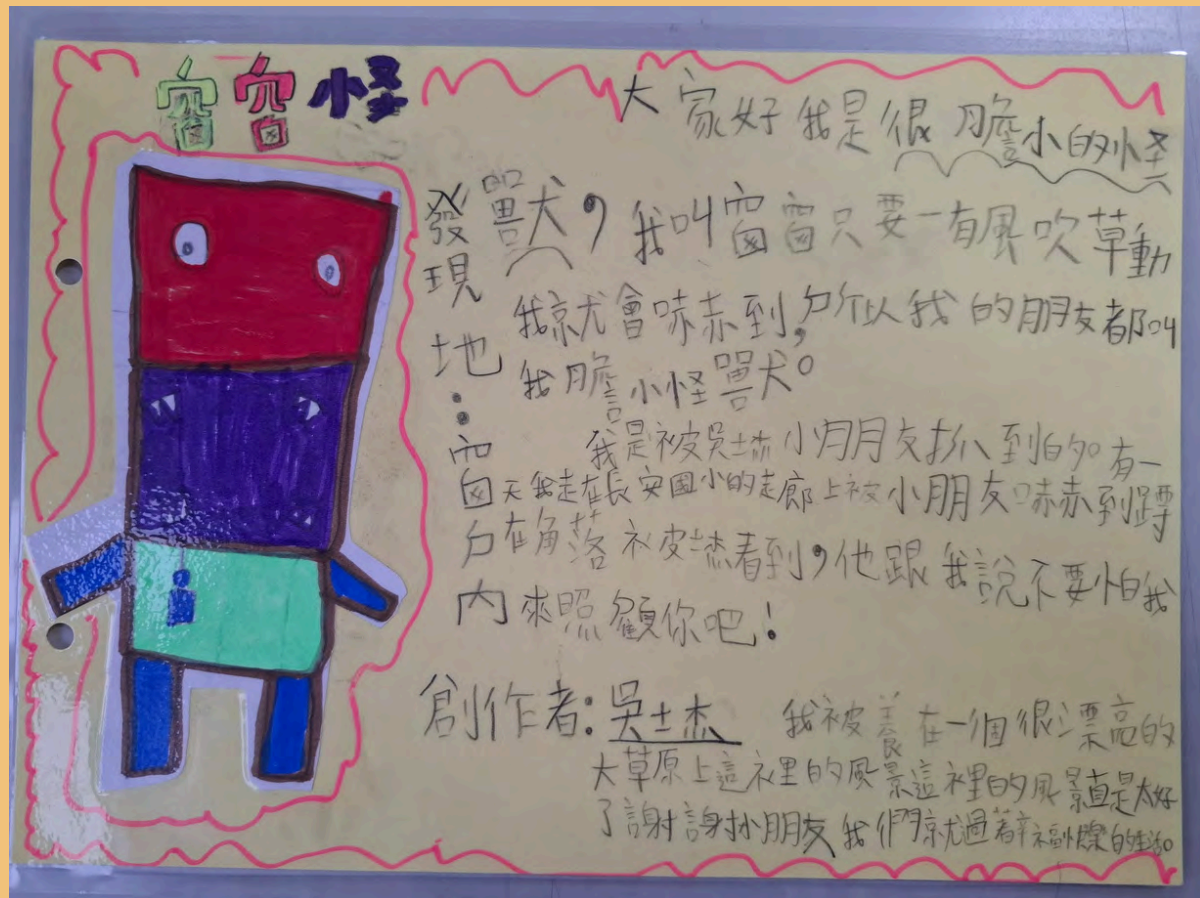 窗窗怪
大家好我是很膽小的小怪
獸，我叫窗窗只要一有風吹草動
我就會嚇到，所以我的朋友都叫
我膽小怪獸。
我是被吳士杰小朋友抓到的。有一
天我走在長安國小的走廊上被小朋友嚇到蹲
在角落被士杰看到，他跟我說不要怕我
來照顧你吧！
發現地：窗戶內
創作者：吳士杰
我被養在一個很漂亮的
大草原上這裡的風景這裡的風景真是太好
了謝謝小朋友我們就過著幸福快樂的生活。